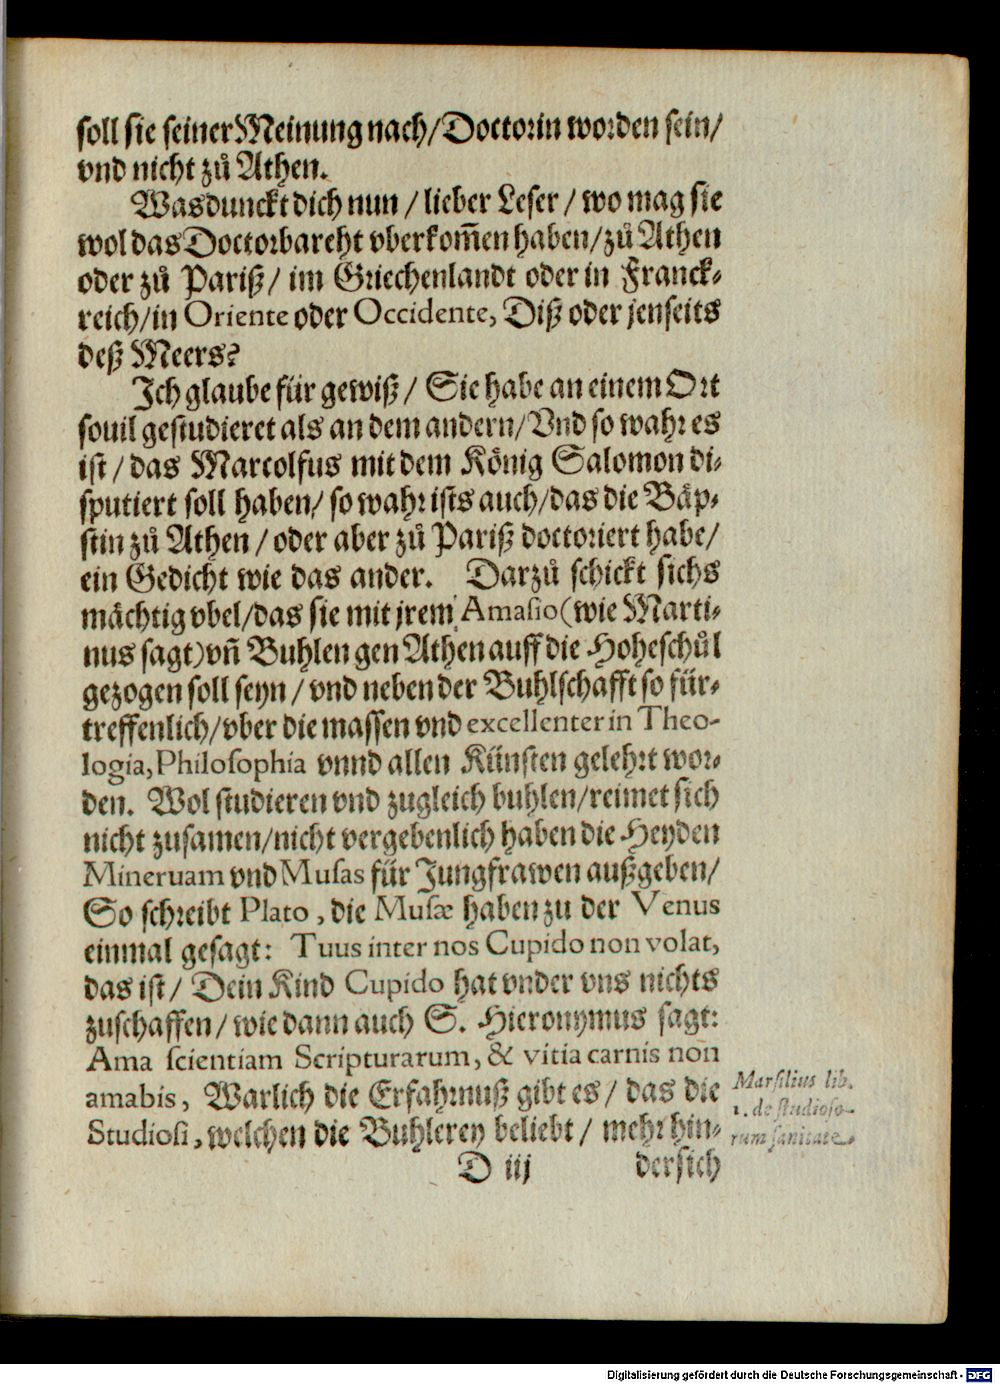 soll sie seiner Meinung nach/Doctorin worden sein/
vnd nicht zů Athen.
Was dunckt dich nun / lieber Leser / wo mag sie
wol das Doctorbareht vberkom̃en haben/zů Athen
oder zů Pariß/ im Griechenlandt oder in Franck-
reich/in Oriente oder Occidente, Diß oder jenseits
deß Meers?
Ich glaube für gewiß / Sie habe an einem Ort
souil gestudieret als an dem andern/Vnd so wahr es
ist / das Marcolfus mit dem König Salomon di-
sputiert soll haben/ so wahr ists auch/das die Bäp-
stin zů Athen / oder aber zů Pariß doctoriert habe/
ein Gedicht wie das ander. Darzů schickt sichs
mächtig vbel/das sie mit jrem Amasio (wie Marti-
nus sagt) vñ Buhlen gen Athen auff die Hoheschůl
gezogen soll seyn / vnd neben der Buhlschafft so für-
treffenlich/vber die massen vnd excellenter in Theo-
logia, Philosophia vnnd allen Künsten gelehrt wor-
den. Wol studieren vnd zugleich buhlen/reimet sich
nicht zusamen/nicht vergebenlich haben die Heyden
Mineruam vnd Musas für Jungfrawen außgeben/
So schreibt Plato, die Musæ haben zu der Venus
einmal gesagt: Tuus inter nos Cupido non volat,
das ist/ Dein Kind Cupido hat vnder vns nichts
zuschaffen/ wie dann auch S. Hieronymus sagt:
Ama scientiam Scripturarum, & vitia carnis non
amabis, Warlich die Erfahrnuß gibt es/ das die
Studiosi, welchen die Buhlerey beliebt / mehr hin-
Marsilius lib.
1. de studioso-
rum sanitate.
D iij dersich
Digitalisierung gefördert durch die Deutsche Forschungsgemeinschaft - DFG